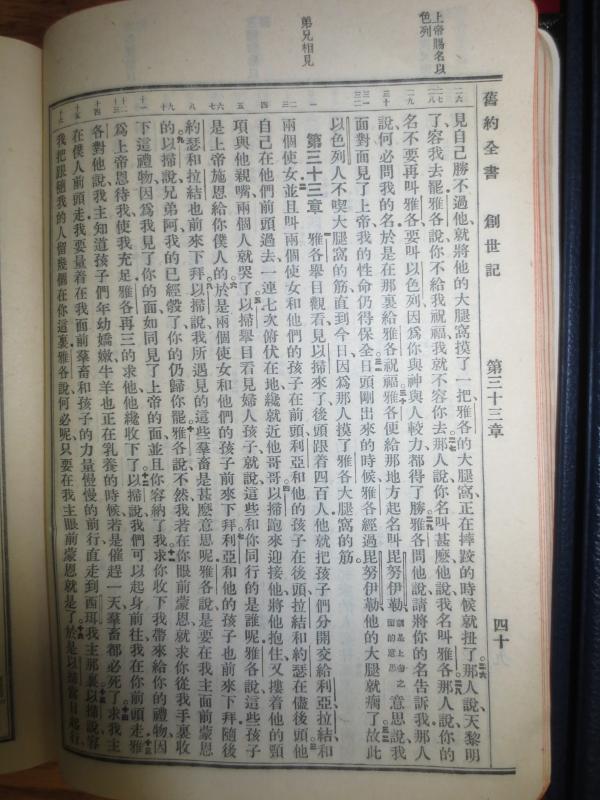 上帝賜名以
色列
弟兄相見
舊約全書 創世記 第三十三章 四十
見自己勝不過他、就將他的大腿窩摸了一把、雅各的大腿窩、正在摔跤的時候就扭了。那人說天黎明
了、容我去罷、雅各說你不給我祝福、我就不容你去。那人說你名叫甚麽、他說我名叫雅各。那人說你的
名不要再叫雅各、要叫以色列、因爲你與神與人較力、都得了勝。雅各問他說請將你的名告訴我、那人
說何必問我的名、於是在那裏給雅各祝福。雅各便給那地方起名叫毘努伊勒、意思說我
面對面見了上帝、我的性命仍得保全。日頭剛出來的時候、雅各經過毘努伊勒、他的大腿就瘸了。故此
以色列人不喫大腿窩的筋、直到今日、因爲那人摸了雅各大腿窩的筋。
第三十三章 雅各舉目觀看、見以掃來了、後頭跟着四百人、他就把孩子們分開交給利亞拉結和
兩個使女。並且叫兩個使女和他們的孩子在前頭、利亞和他的孩子在後頭、拉結和約瑟在儘後頭。他
自己在他們前頭過去、一連七次俯伏在地、纔就近他哥哥。以掃跑來迎接他、將他抱住、又摟着他的頸
項、與他親嘴、兩個人就哭了。以掃舉目看見婦人孩子、就說這些和你同行的是誰呢、雅各說這些孩子
是上帝施恩給你僕人的。於是兩個使女和他們的孩子前來下拜。利亞和他的孩子也前來下拜、隨後
約瑟和拉結也前來下拜。以掃說我所遇見的這些羣畜是甚麽意思呢、雅各說是要在我主面前蒙恩
的。以掃說兄弟阿我的已經彀了、你的仍歸你罷。雅各說不然、我若在你眼前蒙恩、就求你從我手裏收
下這禮物、因爲我見了你的面、如同見了上帝的面、並且你容納了我。求你收下我帶來給你的禮物、因
爲上帝恩待我、使我充足、雅各再三的求他、他纔收下了。以掃說我們可以起身前往、我在你前頭走。雅
各對他說、我主知道孩子們年幼嬌嫩、牛羊也正在乳養的時候、若是催趕一天、羣畜都必死了。求我主
在僕人前頭走、我要量着在我面前羣畜和孩子的力量慢慢的前行、直走到西珥我主那裏。以掃說容
我把跟隨我的人留幾個在你這裏、雅各說何必呢、只要在我主眼前蒙恩就是了。於是以掃當日起行、